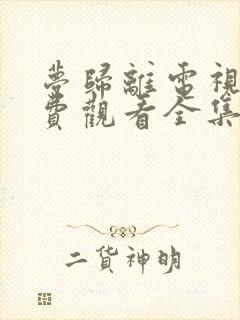 夢歸離電視
費觀看全集
二货神明